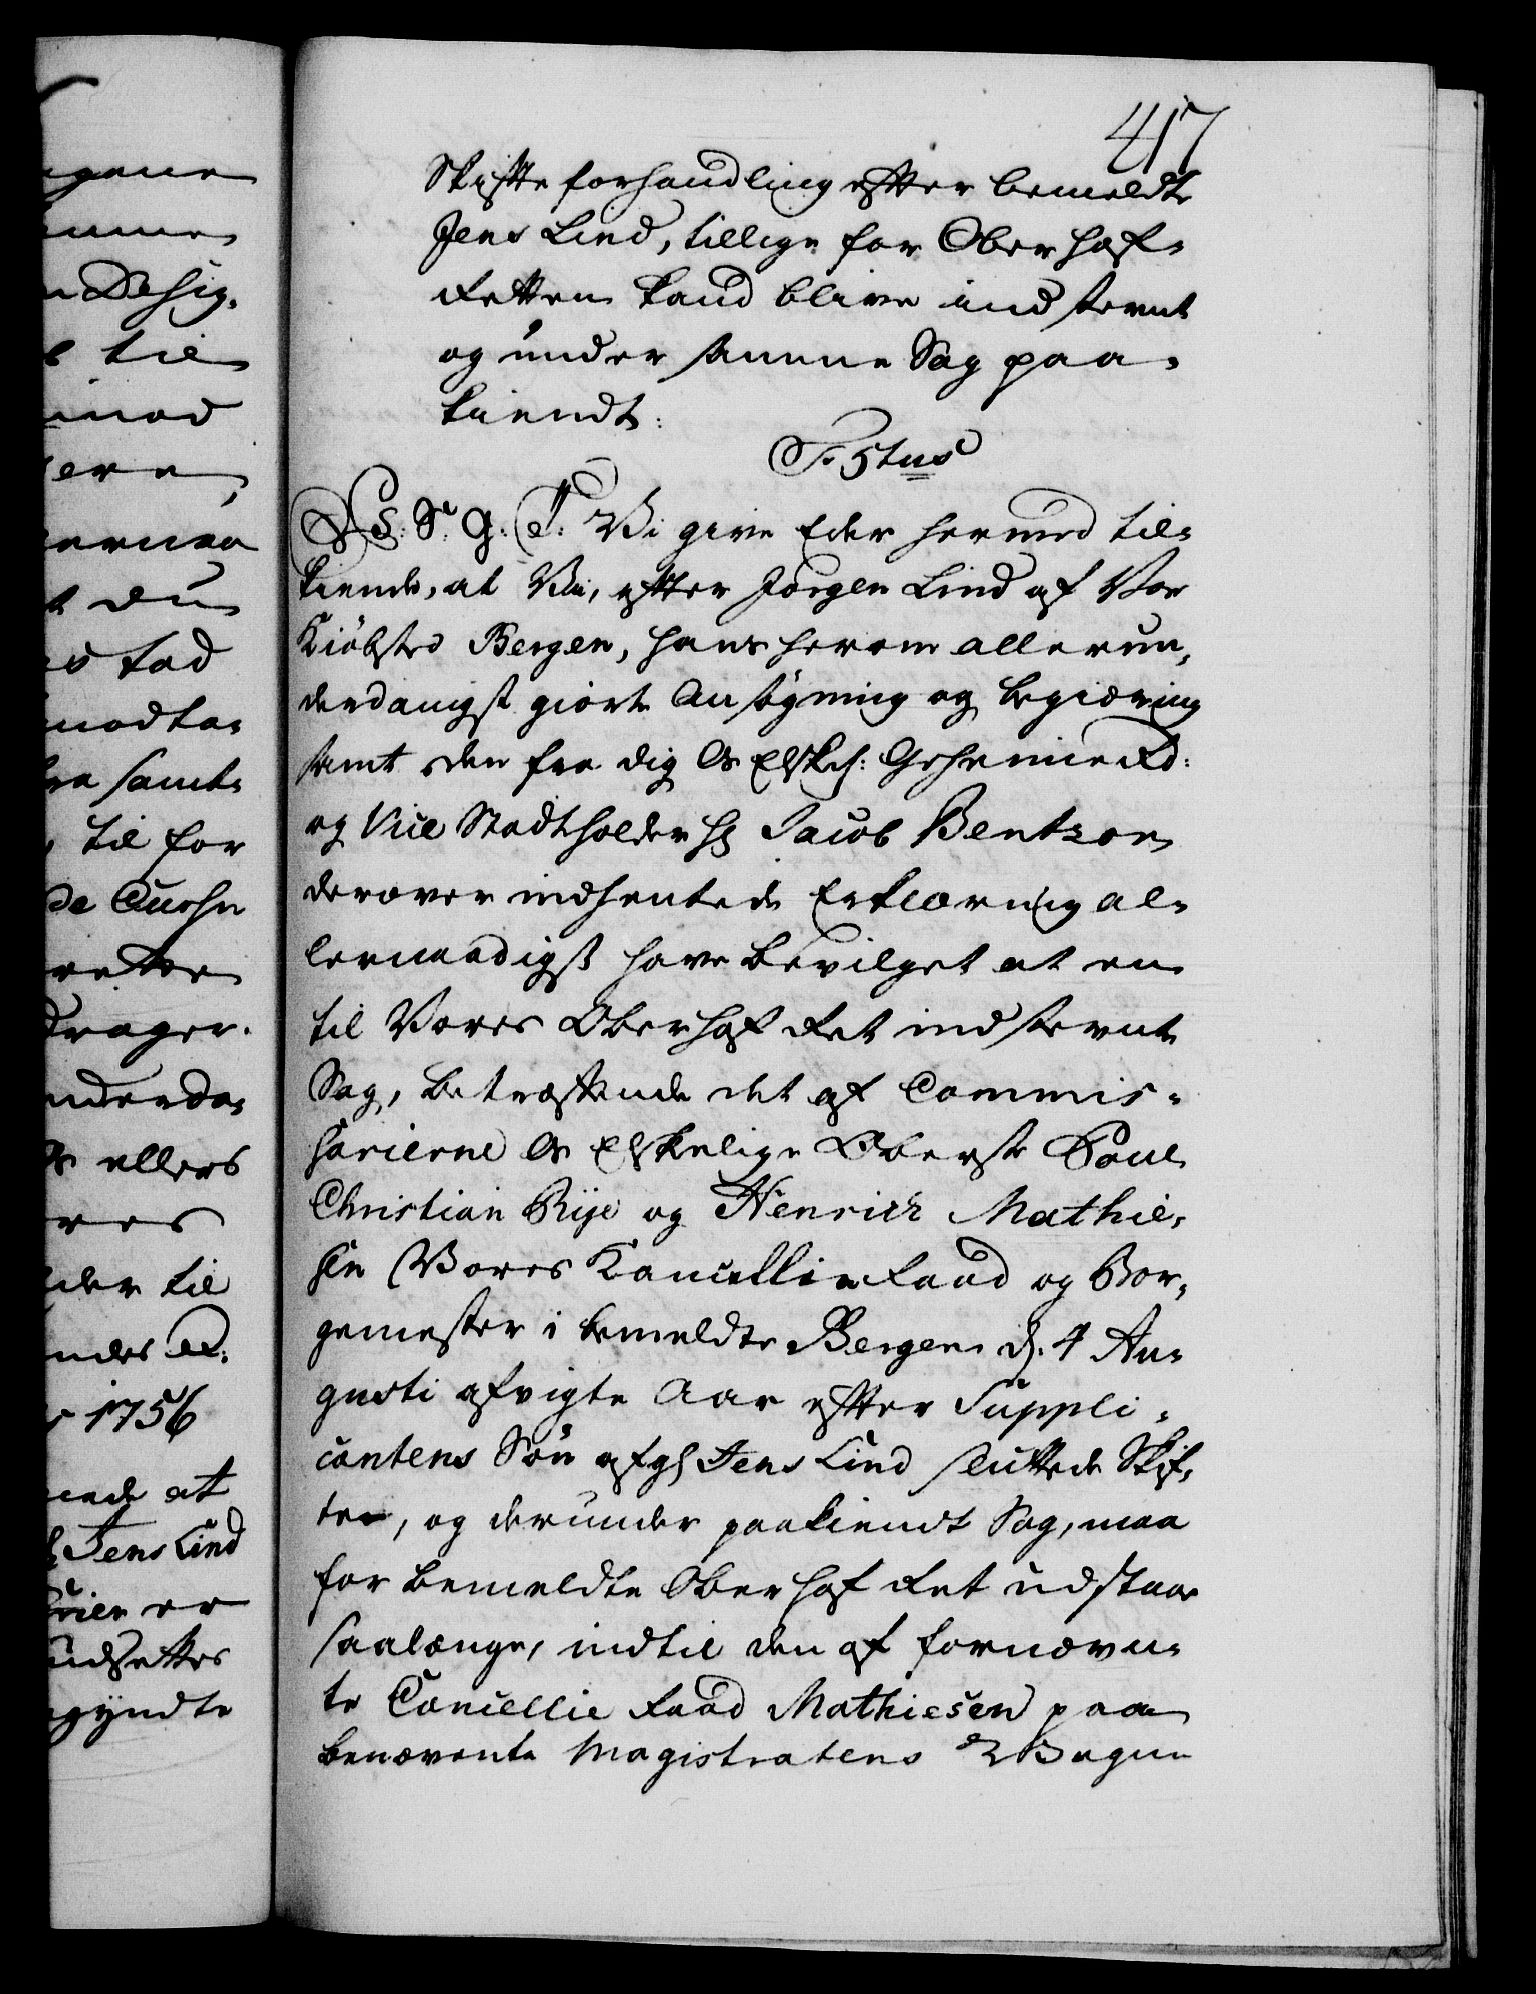 417
Skifte forhandling efter bemeldte
Jens Lind, tillige for Oberhof-
Retten kand blive ind stevnt
og under samme Sag paa-
kiendt.
F. 5tus
S: S: G: T: Vi give Eder hermed til-
kiende, at Vi, efter Jørgen Lind af Vor
Kiøbsted Bergen, hans herom allerun-
derdanigst giorte Ansøgning og begiæring
samt den fra dig Os Elskel: Geheime Rd:
og Vice Stadtholder Hr Jacob Bentzon
derover indhentede Erklæring al-
lernaadigst have bevilget at en
til Vores Oberhof Ret indstevnte
Sag, betreffende det af Commis-
sarierne Os Elskelige Oberste Poul
Christian Rije og Henrich Mathie-
sen Vores Kancellieraad og Bor-
gemester i bemeldte Bergen d. 4 Au-
gusti afvigte Aar efter Suppli-
cantens Søn afgl Jens Lind sluttede Skif-
te, og derunder paakiendt Sag, maa
for bemeldte Oberhof Ret udstaae
saalænge, indtil den af fornævn-
te Cancellie Raad Mathiesen paa
benævnte Magistratens Vegne
igene
Desig-
til
imod
ere
du
tad
modta-
samt
til for
rette
drager.
underda-
ellers
eder til
1756
at
Jens Lind
er
udsettes
gyndte